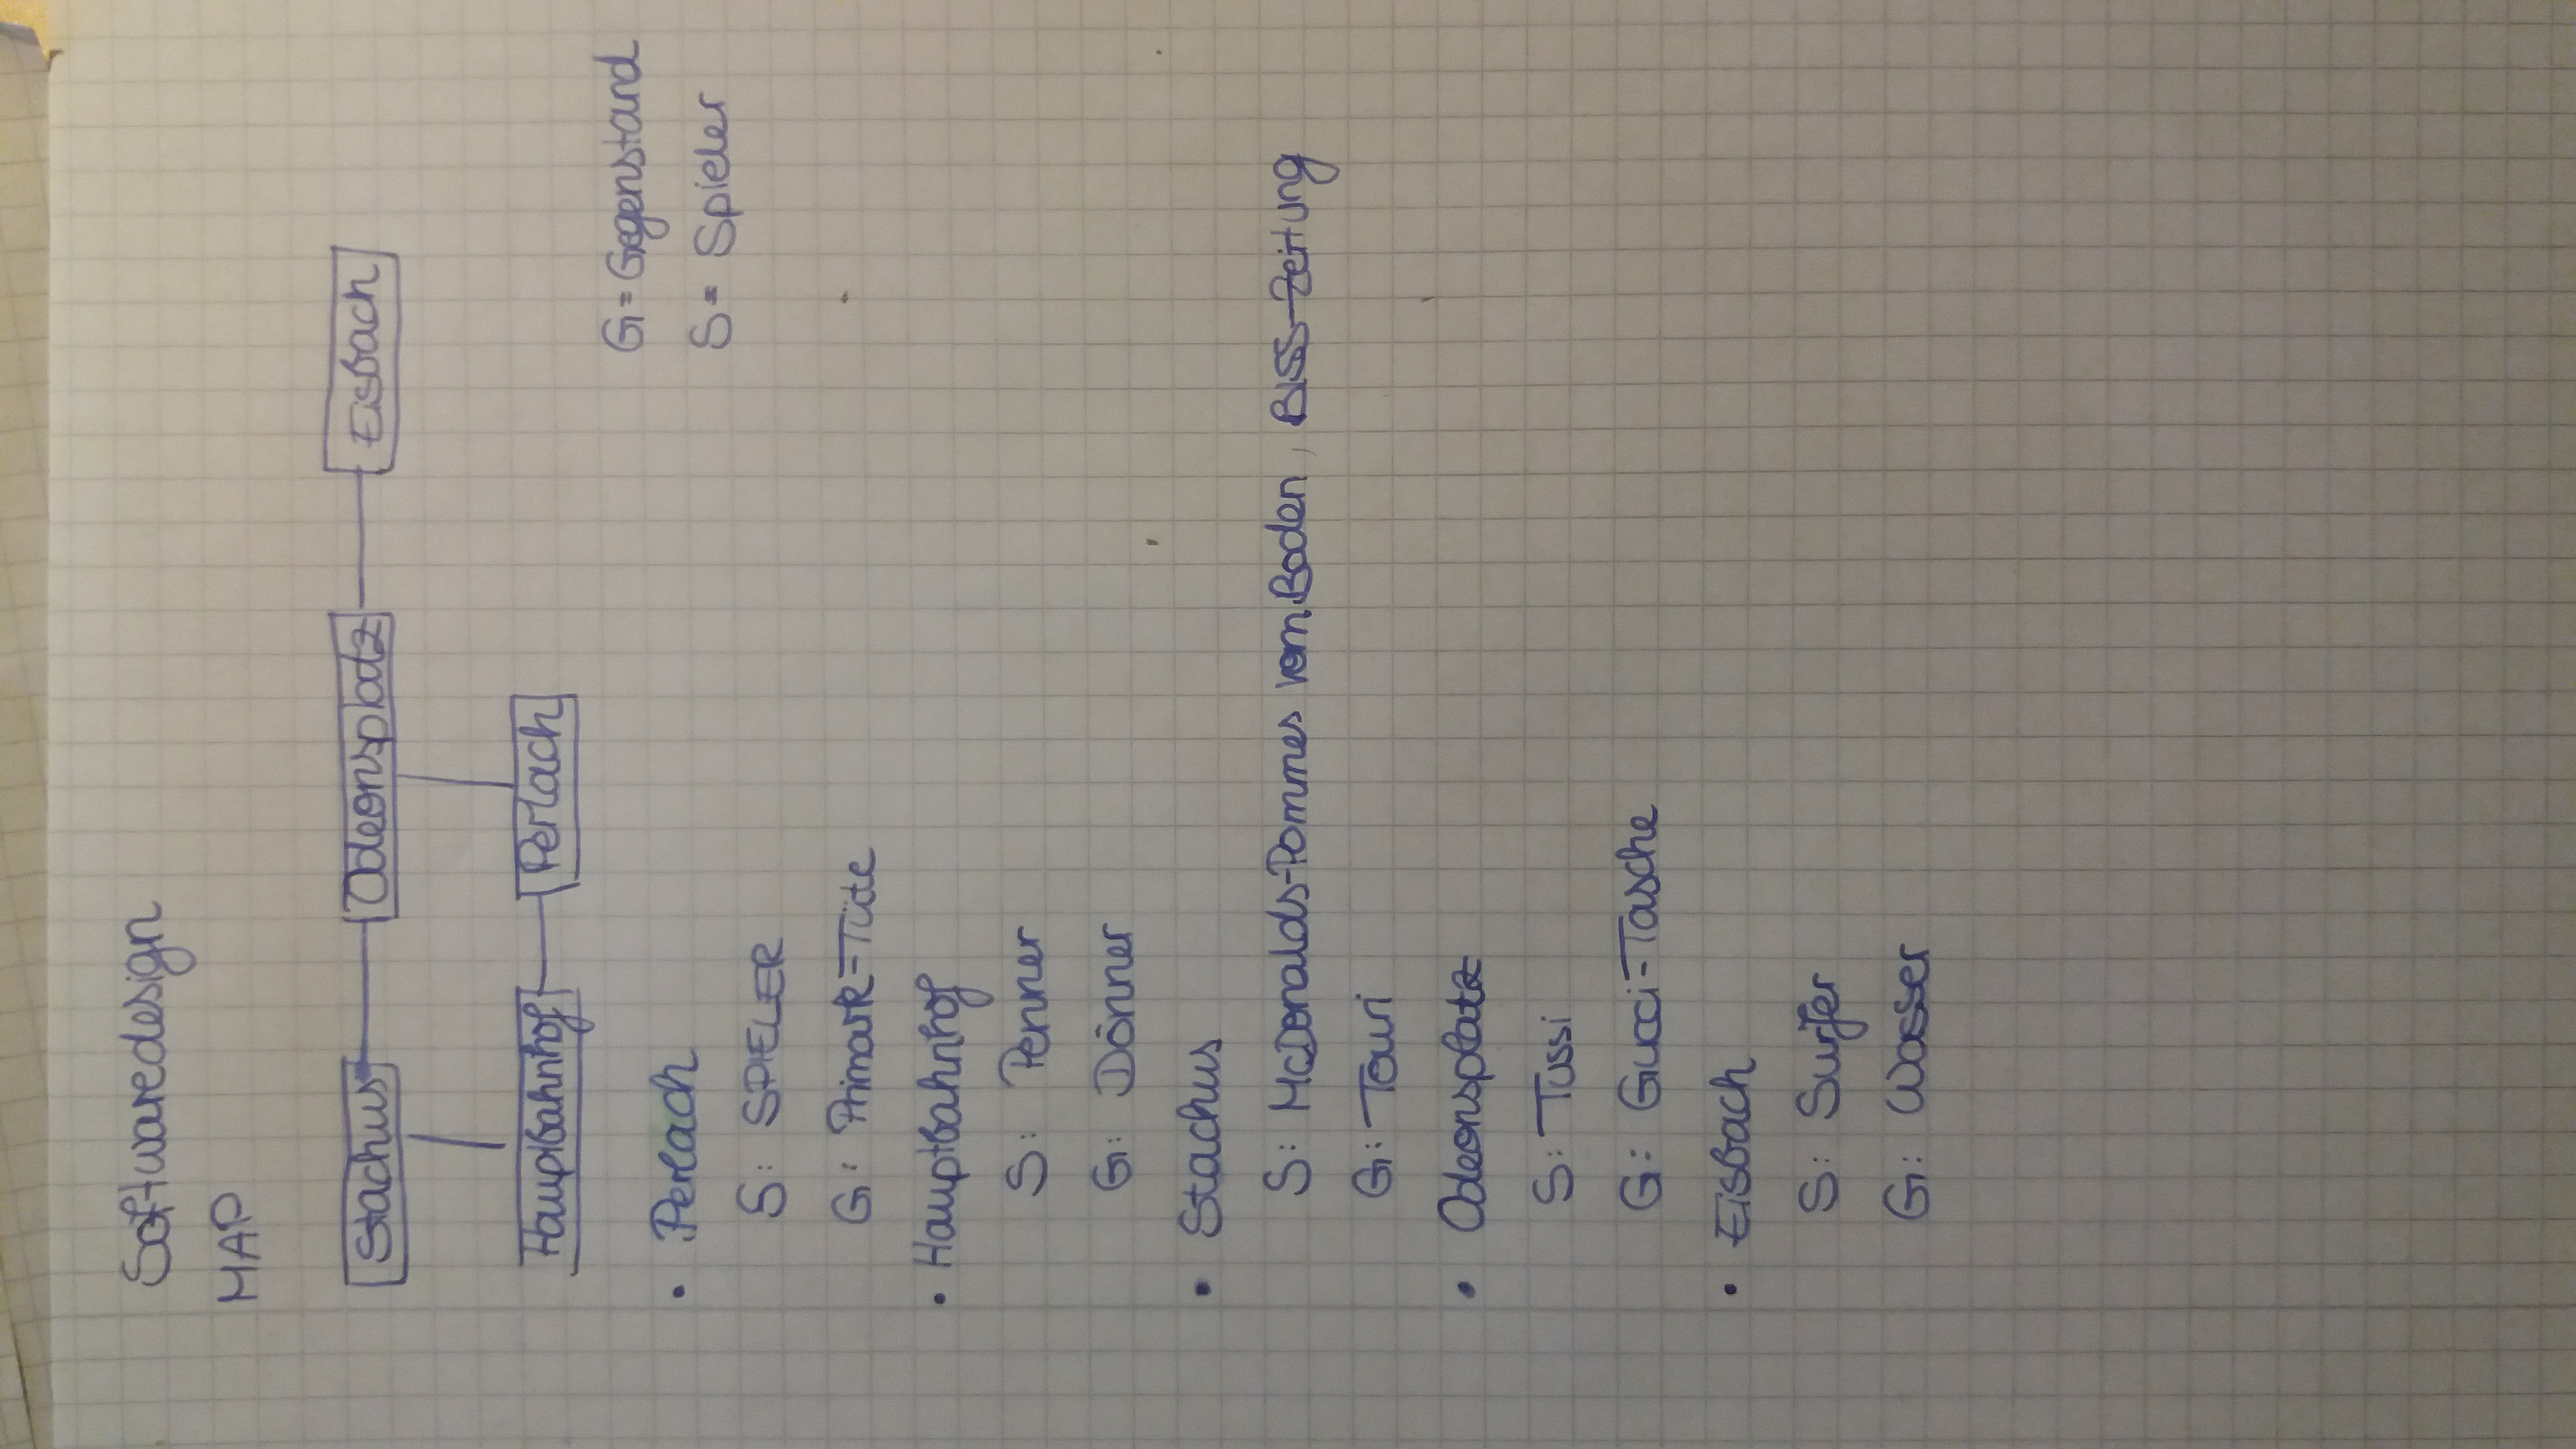 Softwaredesign
MAP
Stachus Odeonsplatz Eisbach
Hauptbahnhof Perlach
G = Gegenstand
• Perlach
S = Spieler
S: SPIELER
G: Primark-Tüte
• Hauptbahnhof
S: Penner
G: Dönner
• Stachus
S: McDonalds-Pommes vom Boden, BISS-Zeitung
G: Touri
• Odeonsplatz
S: Tussi
G: Gucci-Tasche
• Eisbach
S: Surfer
G: Wasser